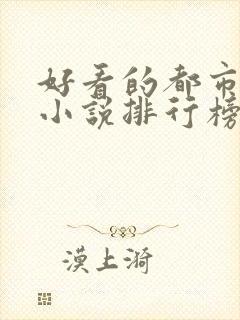 好看的都市
小说排行榜
漠上漪